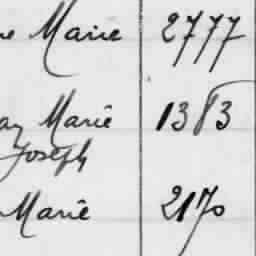 Marie 2777
Marie 1383
Joseph
Marie 2170